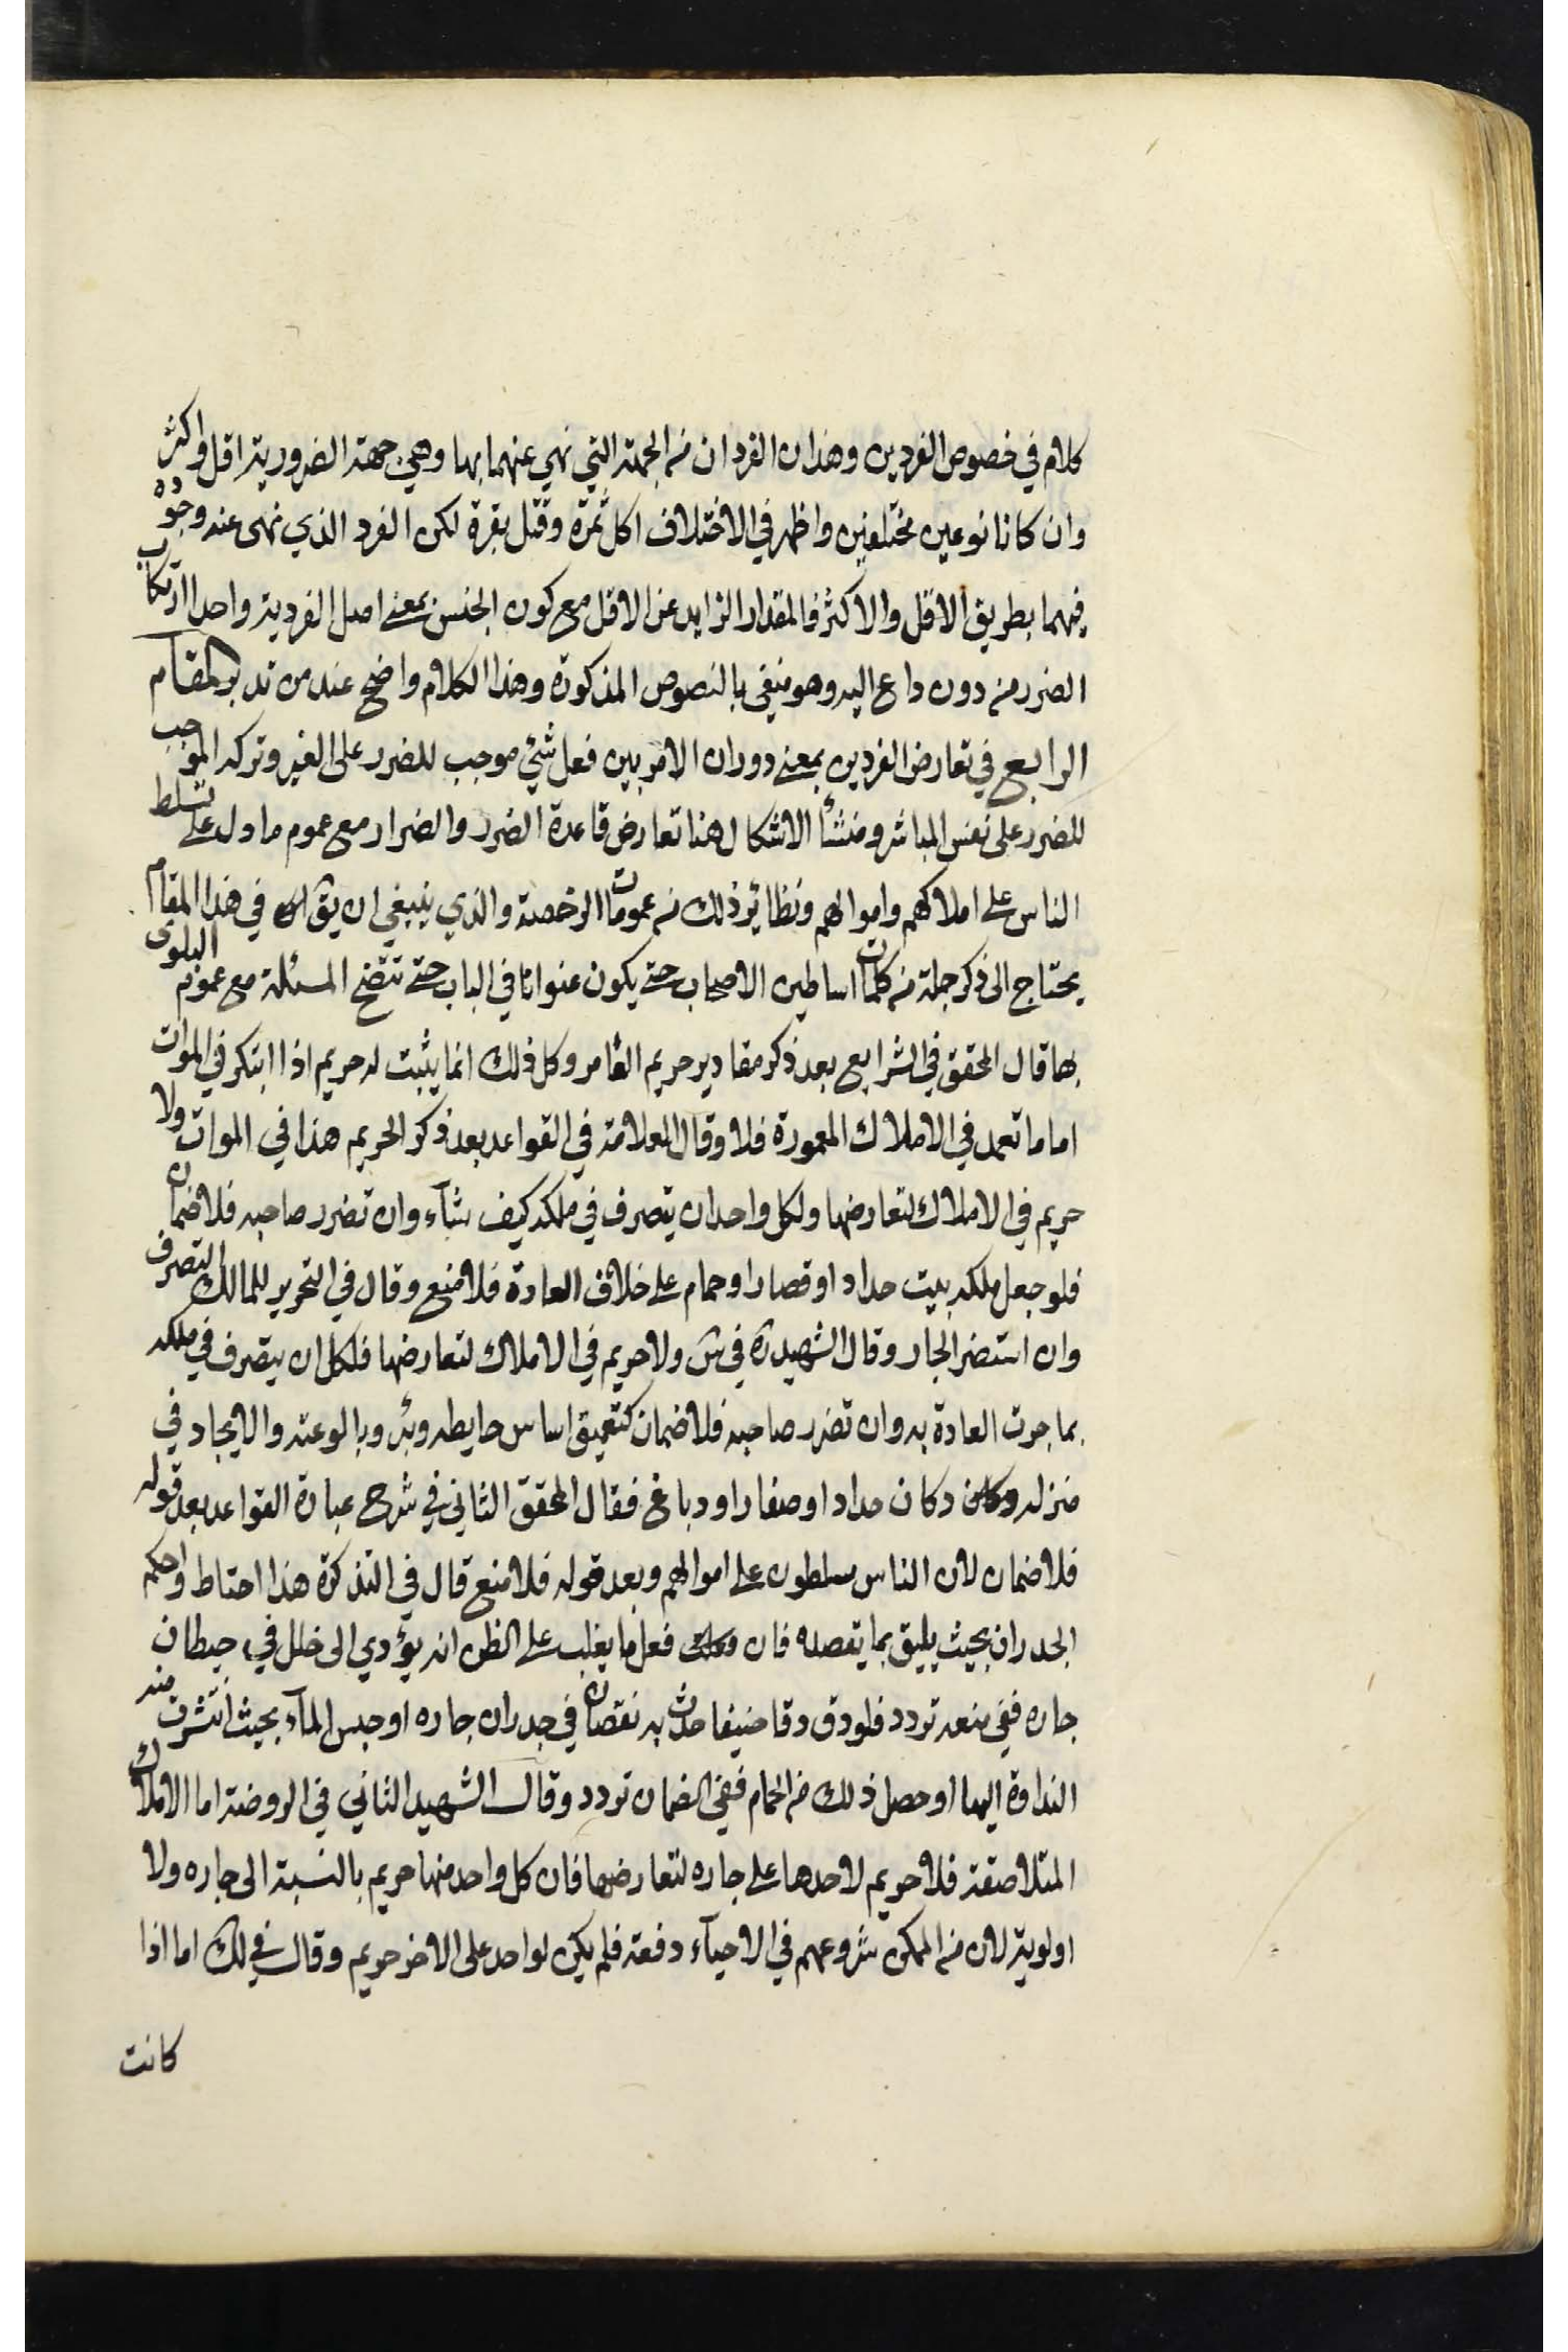 كلام في خصوص الفردين وهذان الفردان من الجهة التي نهي عنهما بها وهي جهة الضرورية اقل واكثر
وان كانا نوعين مختلفين واظهر في الاختلاف اكل ثمرة وقتل بقرة لكن الفرد الذي نهى عنه وجوده
فيهما بطريق الاقل والاكثر فالمقدار الزايد عن الاقل مع كون الجنس بمعنى اصل الفردية واحدا ارتكاب
الضرر من دون داع اليه وهو منفي بالنصوص المذكورة وهذا الكلام واضح عند من تدبر المقام
الرابع في تعارض الفردين بمعنى دوران الامر بين فعل شئ موجب للضرر على الغير وتركه الموجب
للضرر على نفس المباشر ومنشأ الاشكال هنا تعارض قاعدة الضرر والضرار مع عموم ما دل على تسلط
الناس على املاكهم واموالهم ونظاير ذلك من عمومات الرخصة والذي ينبغي ان يق في هذا المقام
يحتاج الى ذكر جملة من كلمات اساطين الاصحاب حتى يكون عنوانا في الباب حتى تتضح المسئلة مع عموم البلوى
بها قال المحقق في الشرايع بعد ذكر مقادير حريم العامر وكل ذلك انما يثبت له حريم اذا ابتكر في الموات
اما ما تعمل في الاملاك المعمورة فلا وقال العلامة في القواعد بعد ذكر الحريم هذا في الموات ولا
حريم في الاملاك لتعارضها ولكل واحد ان يتصرف في ملكه كيف شآء وان تضرر صاحبه فلا ضمان
فلو جعل ملكه بيت حداد او قصار او حمام على خلاف العادة فلا منع وقال في التحرير للمالك التصرف
وان استضر الجار وقال الشهيد ره في س ولا حريم في الاملاك لتعارضها فلكل ان يتصرف في ملكه
بما جرت العادة به وان تضرر صاحبه فلا ضمان كتعميق اساس حايطه وبئر وبالوعته والايجاد في
منزله دكان حداد او صفار او دباغ فقال المحقق الثاني في شرح عبارة القواعد بعد قوله
فلا ضمان لان الناس مسلطون على اموالهم وبعد قوله فلا منع قال في التذكرة هذا احتاط واحكم
الجدران بحيث يليق بما يقصده فان فعل ما يغلب على الظن انه يؤدي الى خلل في حيطان
جاره ففي منعه تردد فلو دق دقا ضيفا حدث به نقصان في جدران جاره او حبس المآء بحيث انتشرت منه
النداوة اليها او حصل ذلك من الحمام ففي الضمان تردد وقال الشهيد الثاني في الروضة اما الاملاك
المتلاصقة فلا حريم لاحدها على جاره لتعارضها فان كل واحد منها حريم بالنسبة الى جاره ولا
اولوية لان من الممكن شروعهم في الاحيآء دفعة فلم يكن لواحد على الاخر حريم وقال في لك اما اذا
كانت